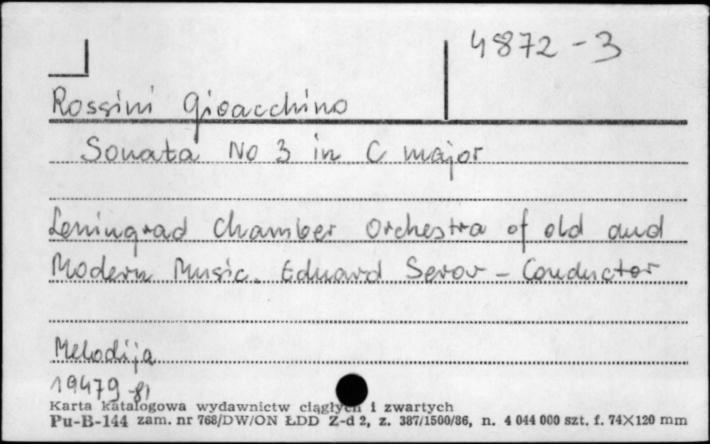 4872-3
Rossini Gioacchino
Sonata No 3 in C major
Leningrad Chamber Orchestra of old and
Modern Music. Eduard Serov - Conductor
Melodija
19479-81
Karta katalogowa wydawnictw ciągłych i zwartych
Pu-B-144 zam. nr 768/DW/ON ŁDD Z-d 2, z. 387/1500/86, n. 4 044 000 szt. f. 74X120 mm